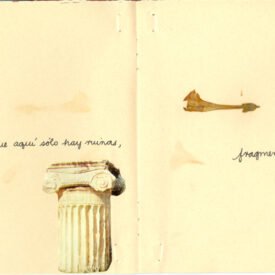 ue aquí sólo hay ruinas,
fragmen